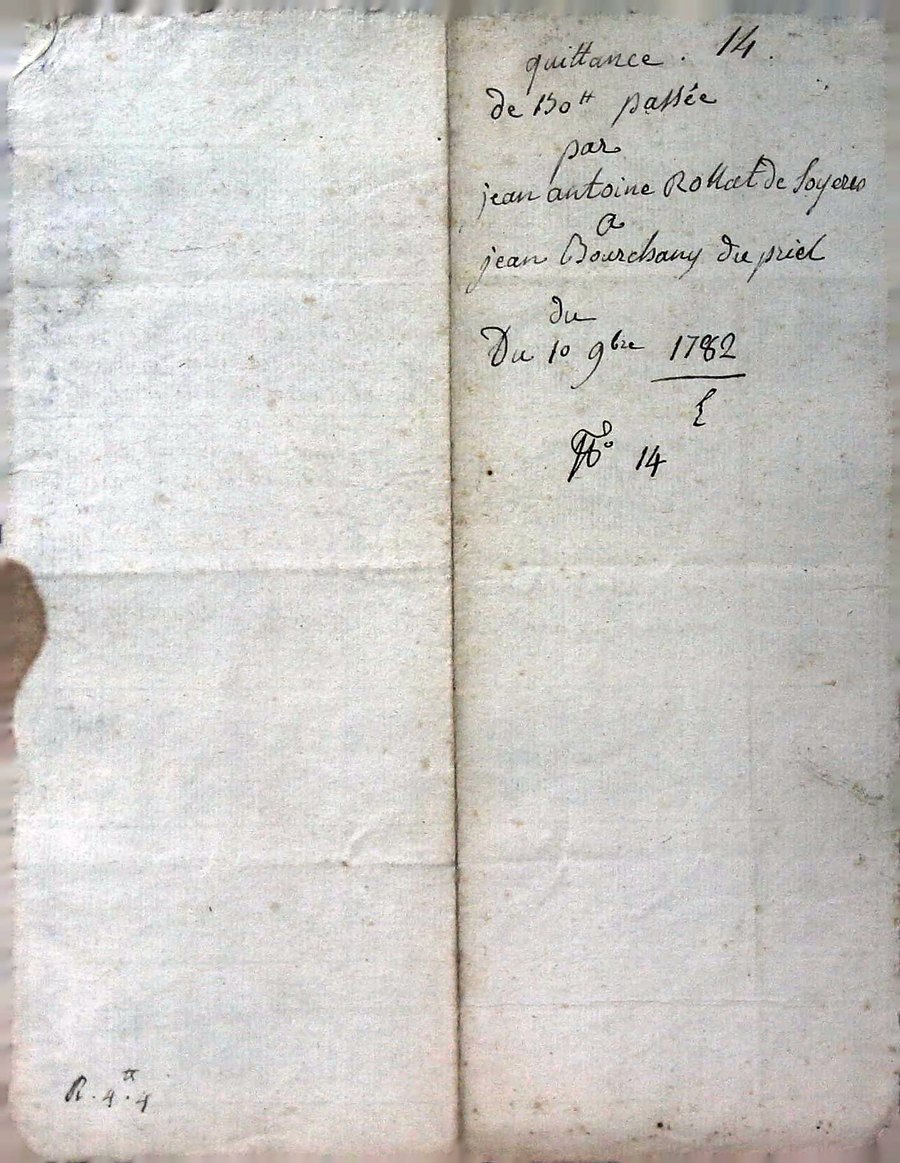 quittance . 14.
de 150 ₶ passée
par
jean antoine Rollat de Soyeres
a
jean Bourchany du priel
du
Du 10 9bre 1782
N° 14
R . 4 ₶ . 4